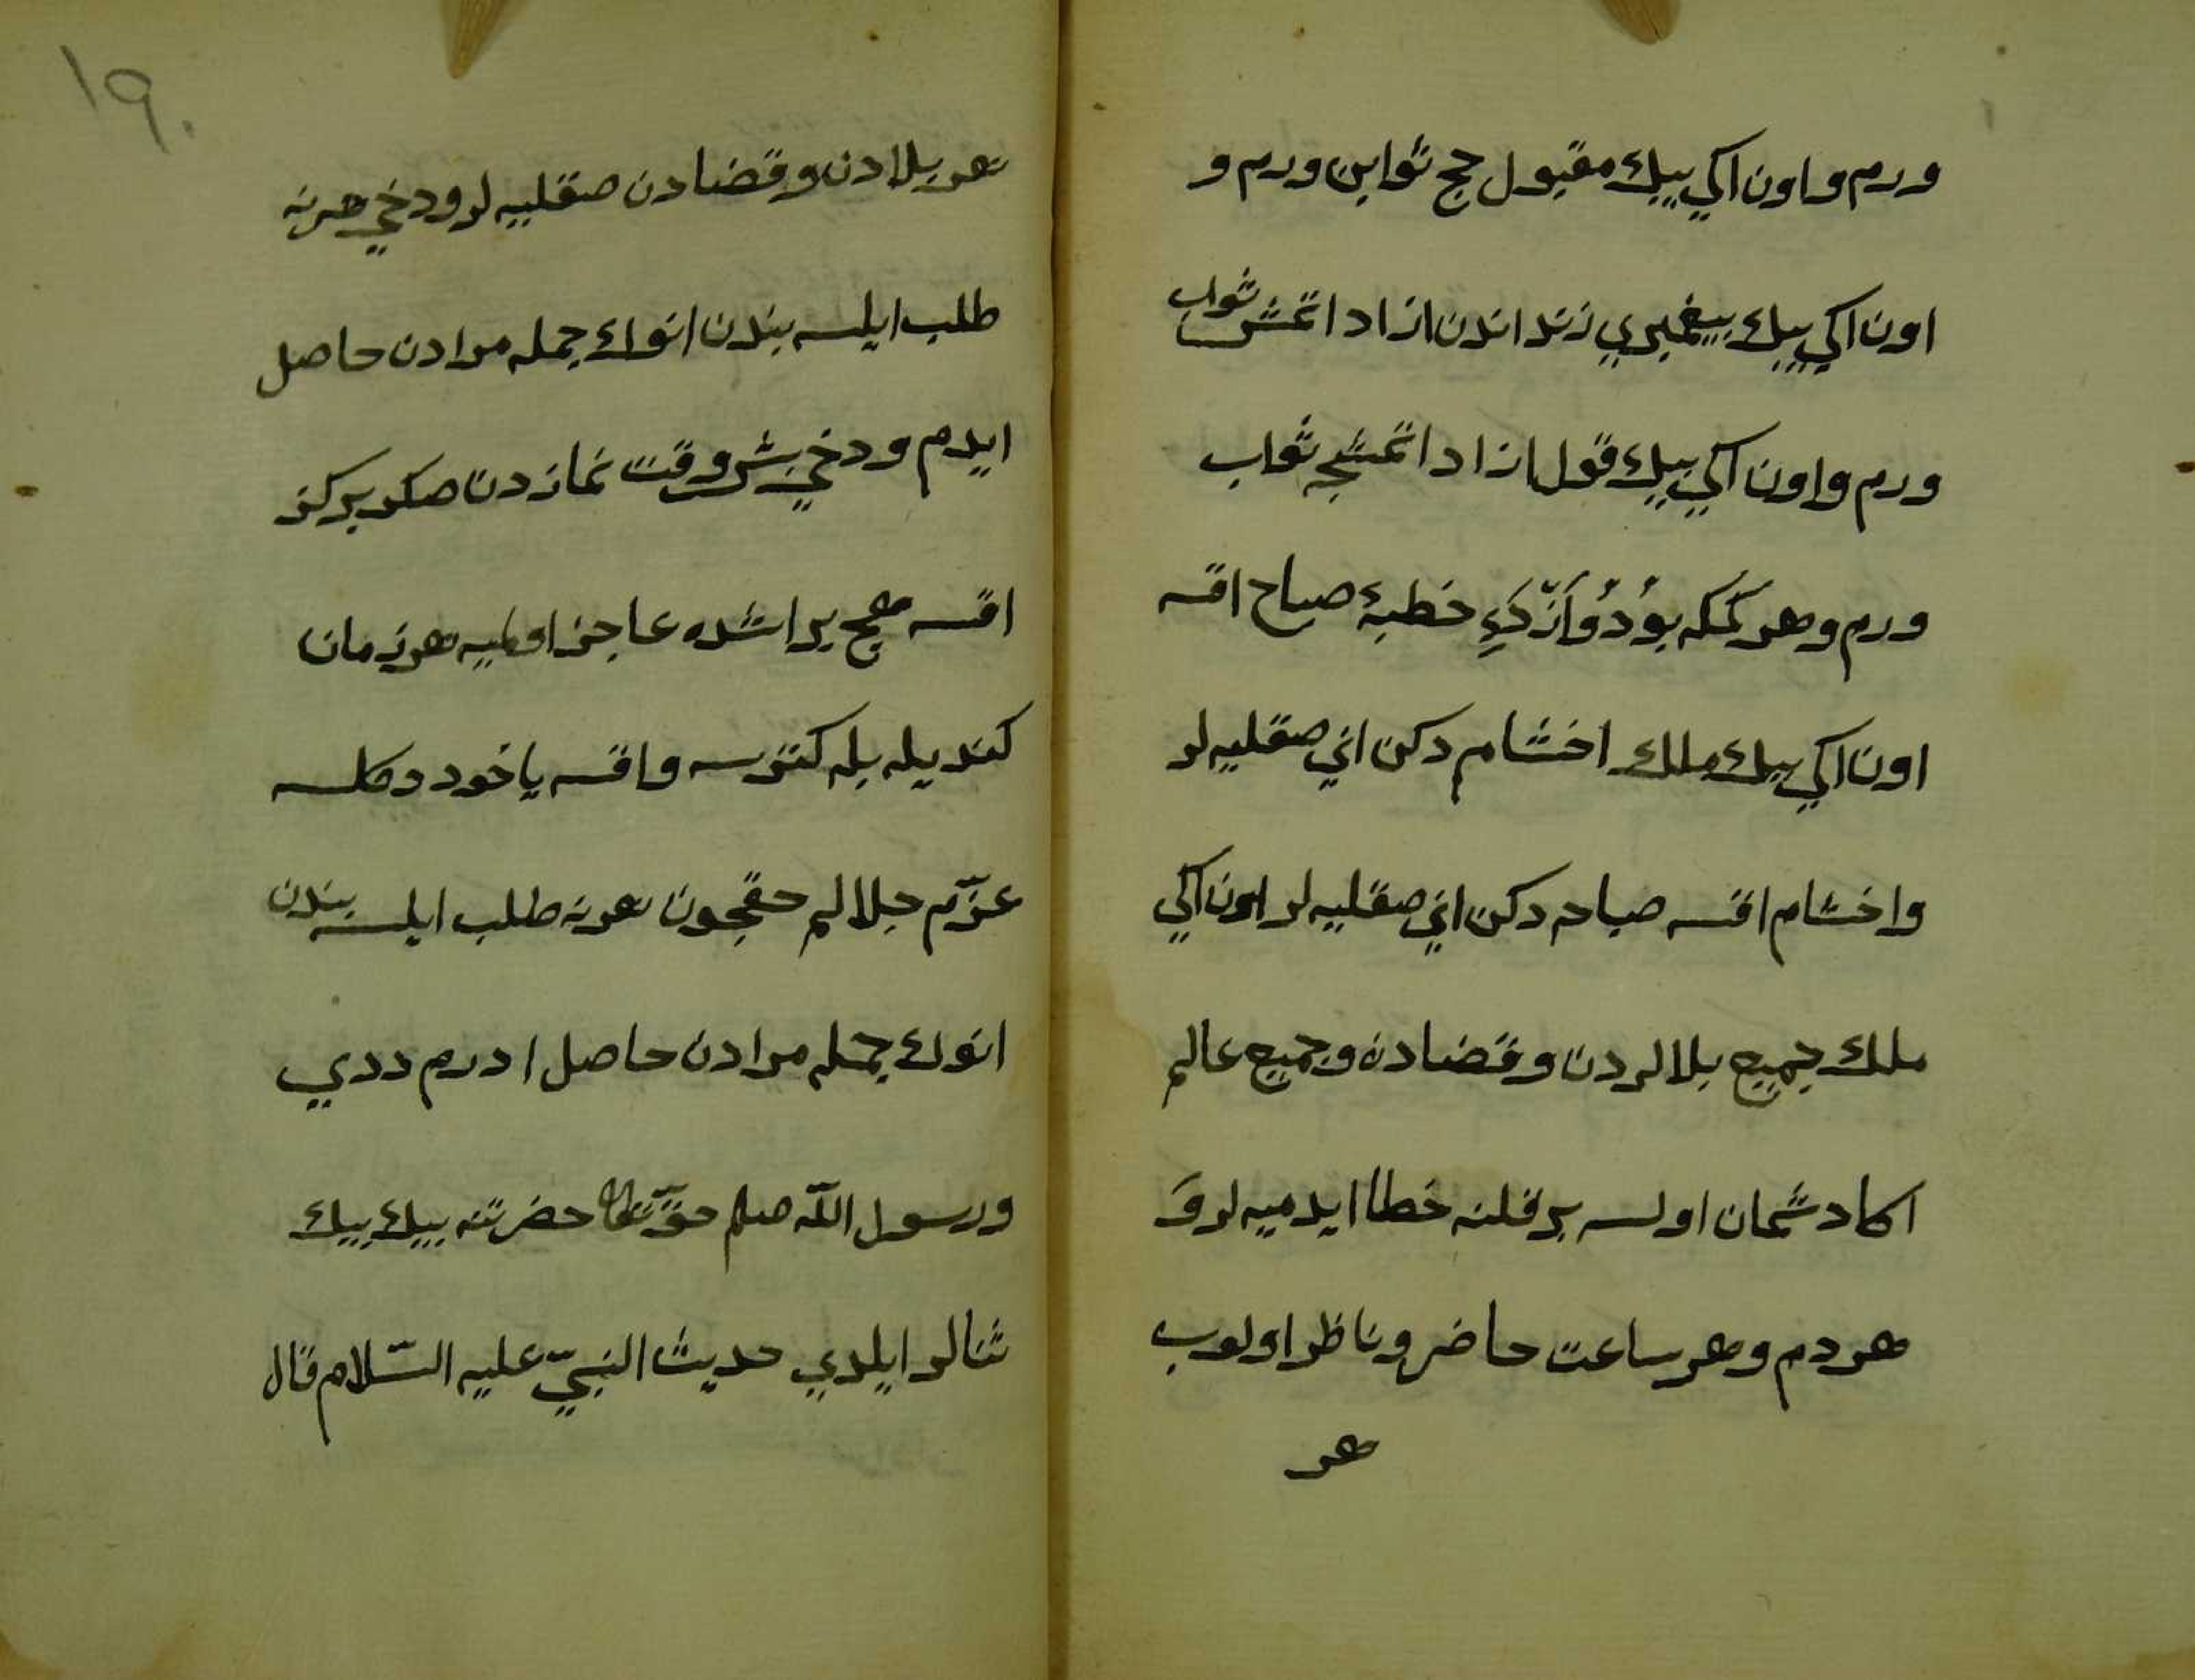 ورم و اون اكي بيك مقبول حج ثوابن ورم و
اون اكي بيك پيغمبري زنداندن ازاد اتمش ثواب
ورم و اون اكي بيك قول ازاد اتمشجه ثواب
ورم و هر كمكه بو خطبهٔ صباح اقسه
اون اكي بيك ملك اخشام دكن اني صقليه لر
و اخشام اقسه صباحه دكن اني صقليه لر اون اكي
ملك جميع بلالردن و قضادن و جميع عالم
اكا دشمان اولسه بر قلنه خطا ايدميه لر و
هر دم و هر ساعت حاضر و ناظر اولوب
هر
١٩٠
هر بلادن و قضادن صقليه لر و دخي هر نه
طلب ايلسه بندن انوك جمله مرادن حاصل
ايدم و دخي بش وقت نمازدن صكر بر كز
اقسه هيچ بر اشده عاجز اولميه هر زمان
كنديله بله كتورسه و اقسه ياخود دكلسه
عزّم جلالم حقيچون هر نه طلب ايلسه بندن
انوك جمله مرادن حاصل ادرم ددي
و رسول اللّه صلم حقّ تعالى حضرتنه بيك بيك
ثنالر ايلدي حديث النبيّ عليه السّلام قال